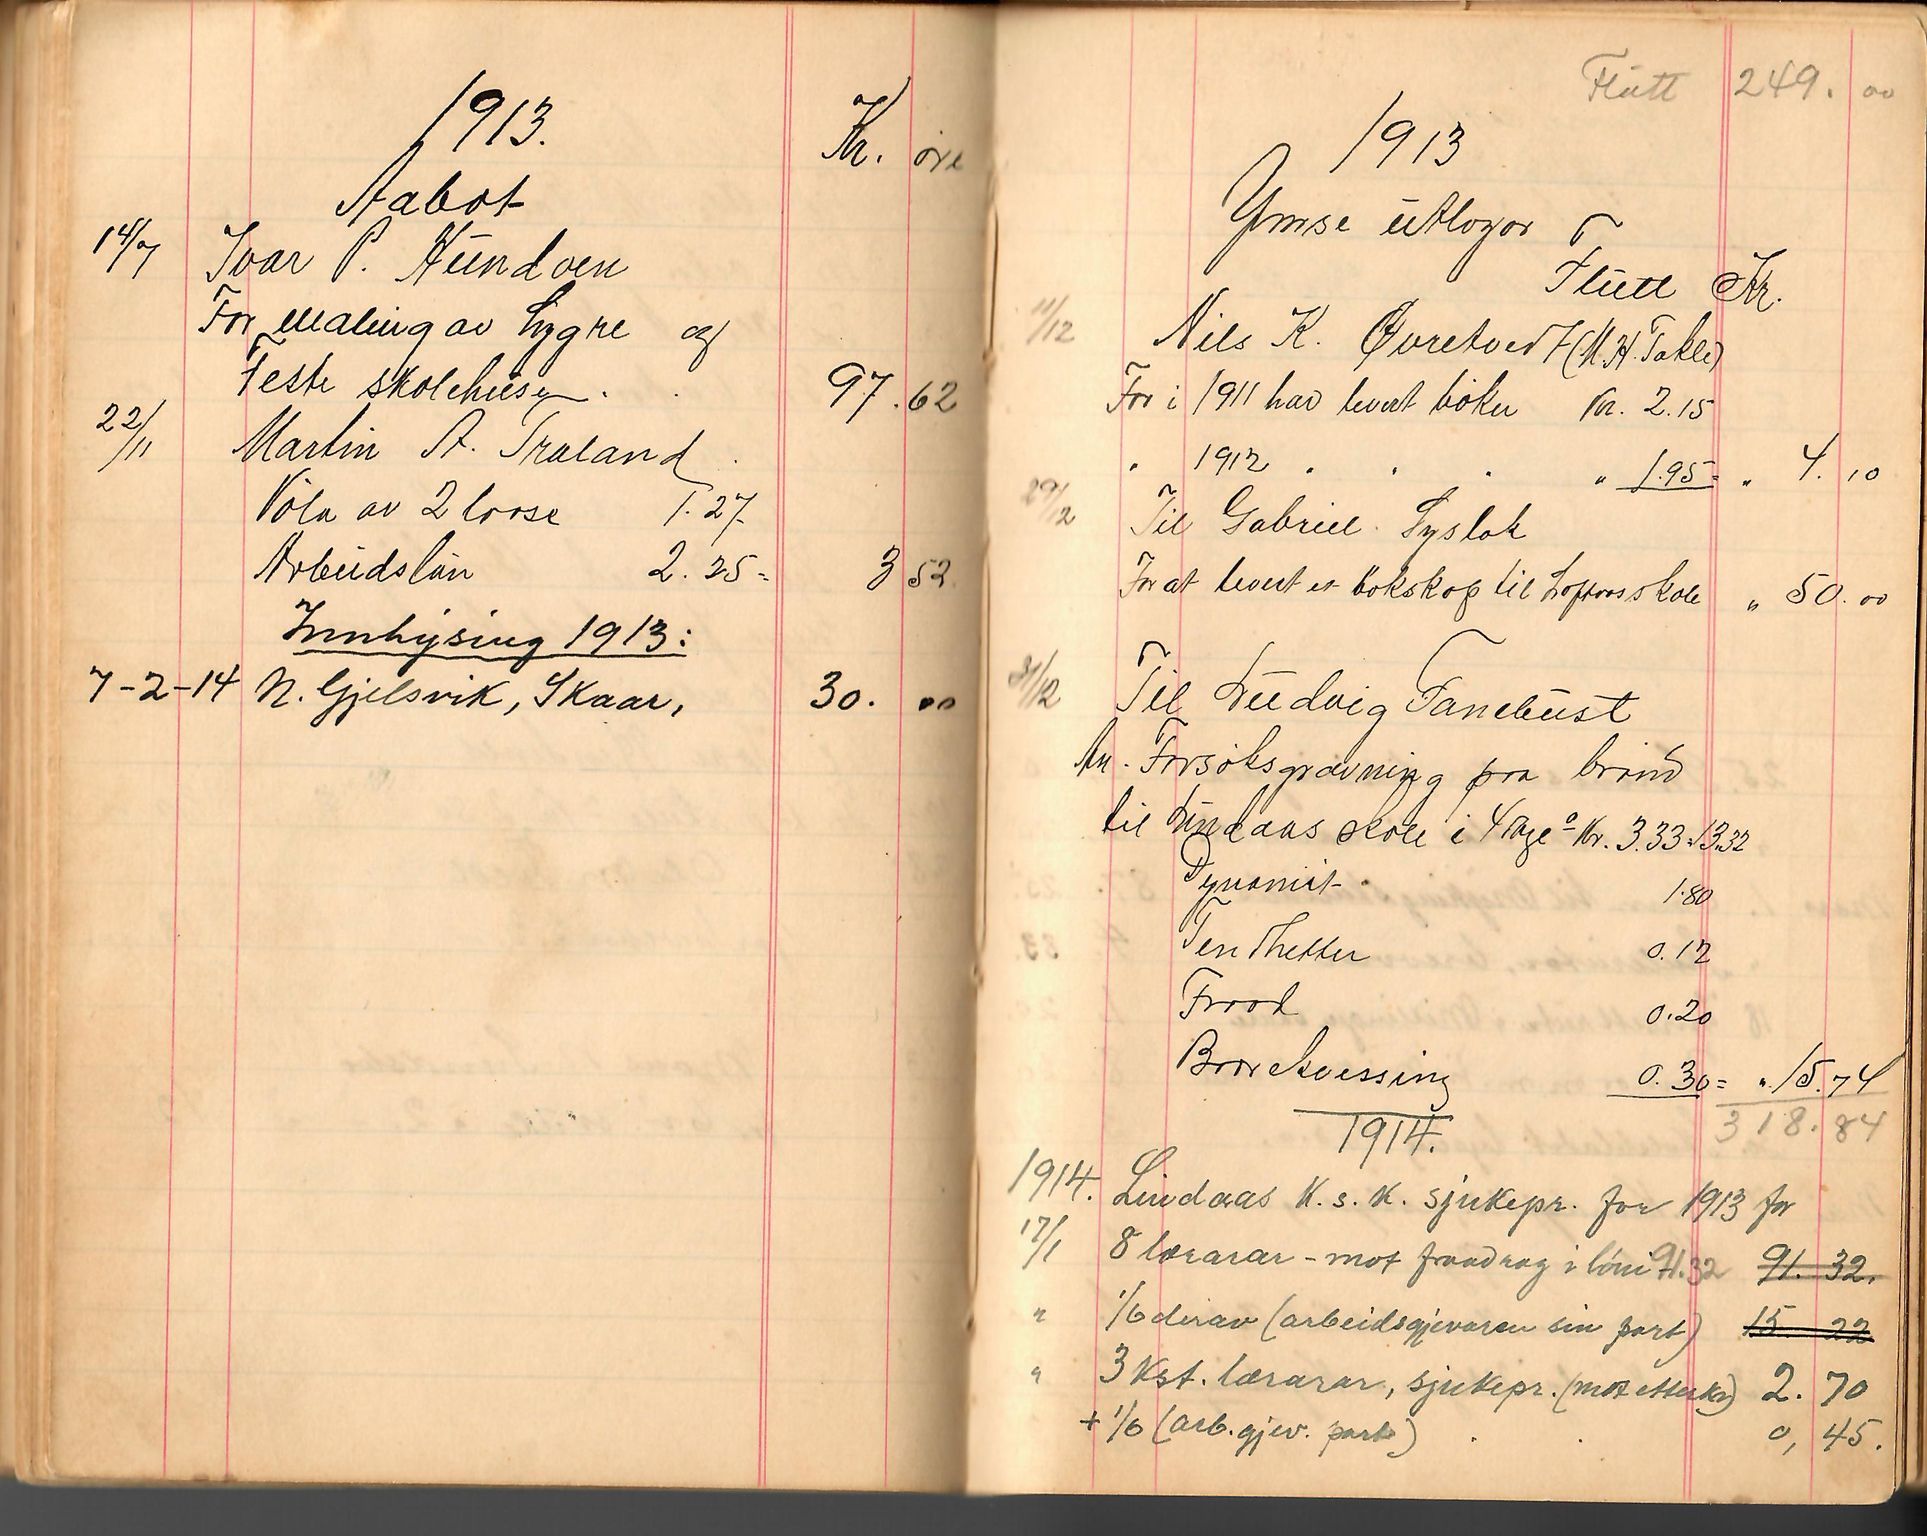 1913.
Kr. öre
Aabot
14/7 Ivar P. Hundven
For maling av Lygre og
Feste skolehus. 97.62
22/11 Martin A. Træland
Völa av 2 loose 1.27
Arbeidslön 2.25 = 3 52
Innhysing 1913:
7-2-14 N. Gjelsvik, Skaar, 30. 00
Flutt 249. 00
1913
Ymse utlogor
Flutt Kr.
11/12 Nils K. Øvretvedt (M. H. Takle)
For i 1911 har levert böker Kr. 2.15
" 1912 " " " " 1.95 = " 4.10
29/12 Til Gabriel Syslak
For at levert et bokskap til Loftaas skole " 50.00
31/12 Til Ludvig Fanebust
Forsöksgravning paa brönd
til Lindaas skole i 4 dage à Kr. 3.33 = 13.32
Dynamit 1.80
Tendhetter 0.12
Traad 0.20
Borekvessing 0.30 = " 15.74
318.84
1914.
1914. Lindaas K. s. K. sjukepr. for 1913 for
17/1 8 lærarar - mot fraadrag i löni 91.32 91. 32.
" 1/6 derav (arbeidsgjevaren sin part) 15 22
" 3 Kst. lærarar, sjukepr. (mot etterkr) 2. 70
+ 1/6 (arb.gjev. part) 0, 45.